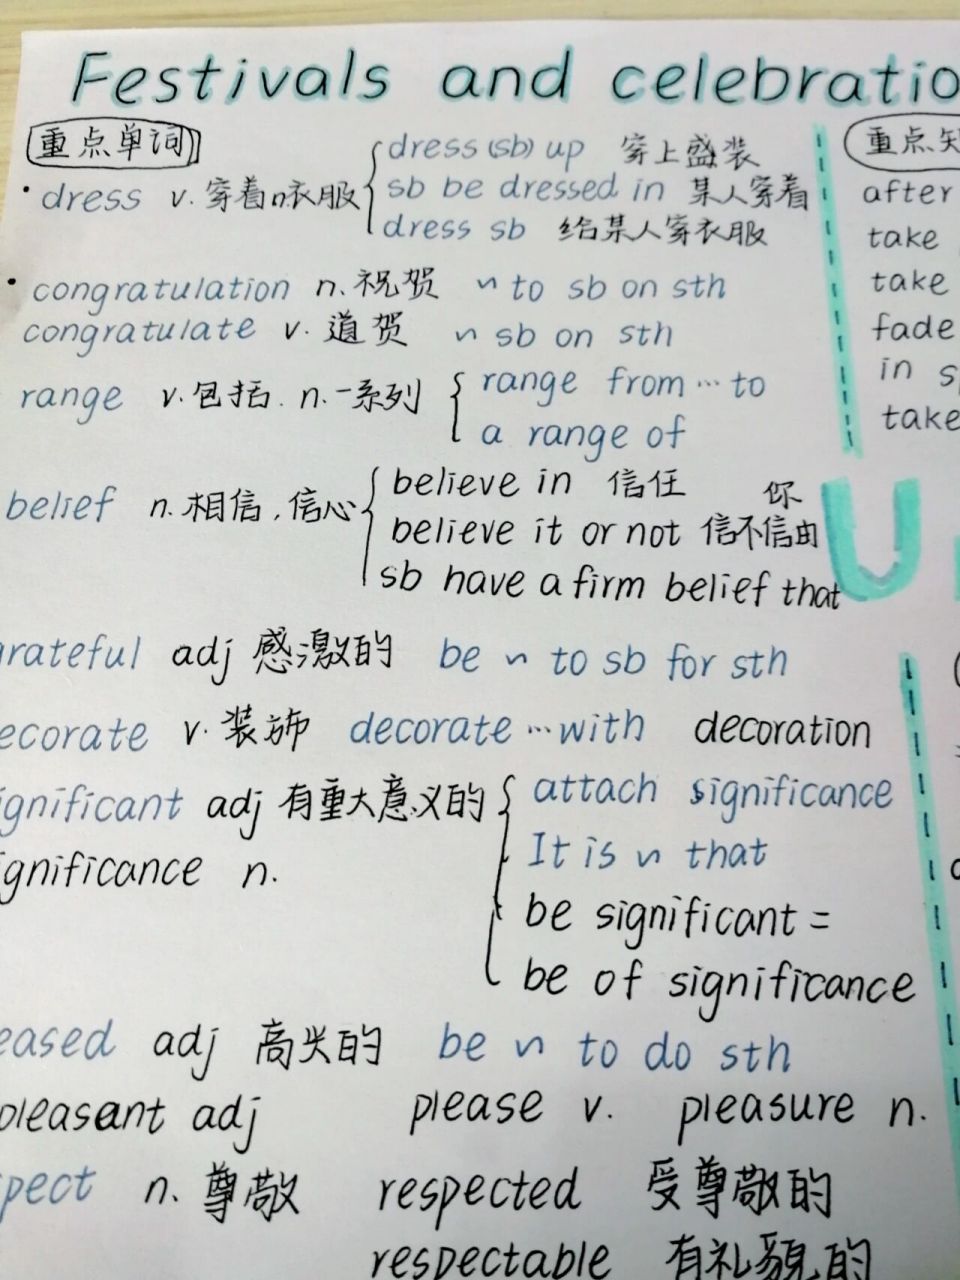 Festivals and celebratio
重点单词
dress (sb) up 穿上盛装
dress v. 穿着n衣服
sb be dressed in 某人穿着
dress sb 给某人穿衣服
congratulation n. 祝贺 ~ to sb on sth
congratulate v. 道贺 ~ sb on sth
range v. 包括. n. 一系列
range from … to
a range of
belief n. 相信, 信心
believe in 信任
believe it or not 信不信由你
sb have a firm belief that
grateful adj 感激的 be ~ to sb for sth
ecorate v. 装饰 decorate … with decoration
ignificant adj 有重大意义的
attach significance
It is ~ that
ignificance n.
be significant =
be of significance
eased adj 高兴的 be ~ to do sth
pleasant adj please v. pleasure n.
pect n. 尊敬 respected 受尊敬的
respectable 有礼貌的
重点
after
take
take
fade
in s
take
U